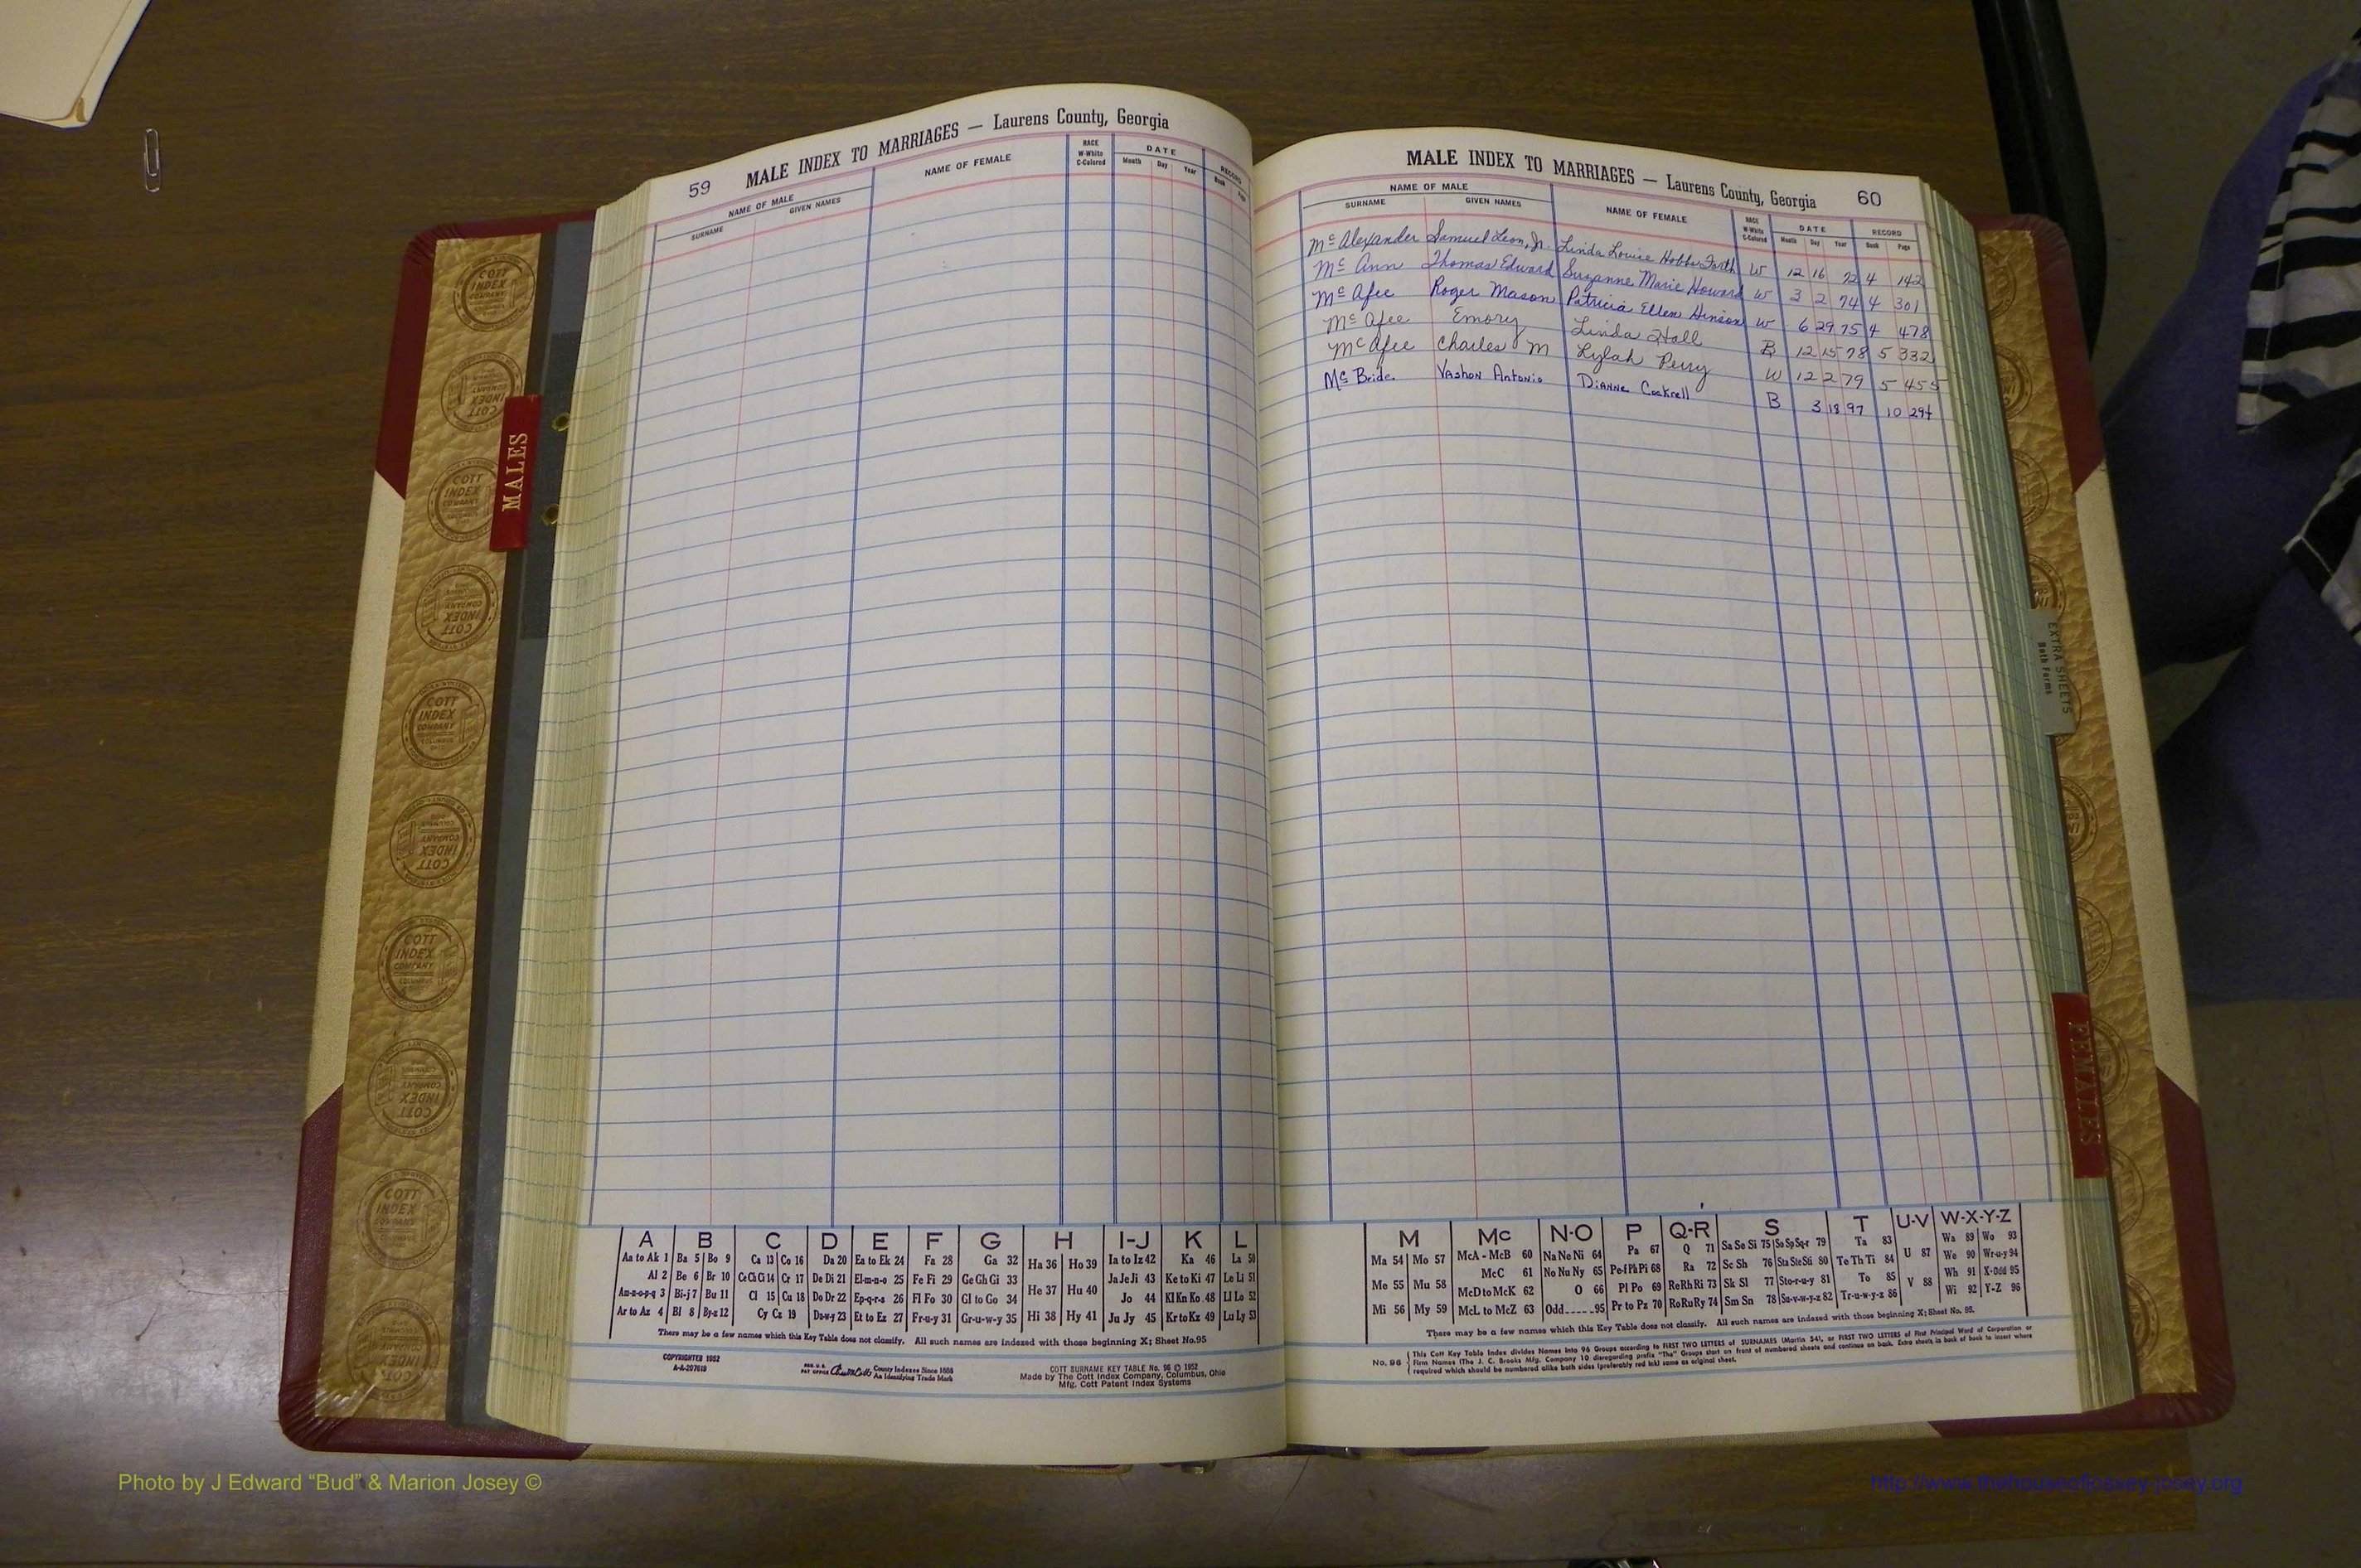 59 MALE INDEX TO MARRIAGES — Laurens County, Georgia
NAME OF MALE
SURNAME GIVEN NAMES NAME OF FEMALE
RACE
W-White
C-Colored
DATE
Month Day Year
RECORD
Book Page
MALE INDEX TO MARRIAGES — Laurens County, Georgia 60
NAME OF MALE
SURNAME GIVEN NAMES NAME OF FEMALE
RACE
W-White
C-Colored
DATE
Month Day Year
RECORD
Book Page
McAlexander Samuel Leon, Jr. Linda Louise Hobbs W 12 16 72 4 142
Mc Ann Thomas Edward Suzanne Marie Howard W 3 2 74 4 301
Mc Afee Roger Mason Patricia Ellen Hinson W 6 29 75 4 478
Mc Afee Emory Linda Hall B 12 15 78 5 332
Mc Afee Charles M Lylah Perry W 12 2 79 5 455
Mc Bride Vashon Antonio Dianne Cockrell B 3 18 97 10 294
MALES
EXTRA SHEETS
Both Forms
FEMALES
A B C D E F G H I-J K L
Aa to Ak 1 Ba 5 Bo 9 Ca 13 Co 16 Da 20 Ea to Ek 24 Fa 28 Ga 32 Ha 36 Ho 39 Ia to Iz 42 Ka 46 La 50
Al 2 Be 6 Br 10 Ce Ch Ci 14 Cr 17 De Di 21 El-m-n-o 25 Fe Fi 29 Ge Gh Gi 33 He 37 Hu 40 Ja Je Ji 43 Ke to Ki 47 Le Li 51
Am-n-o-p-q 3 Bi-j 7 Bu 11 Cl 15 Cu 18 Do Dr 22 Ep-q-r-s 26 Fl Fo 30 Gl to Go 34 Jo 44 Kl Kn Ko 48 Ll Lo 52
Ar to Az 4 Bl 8 By-z 12 Cy Cz 19 Du-w-y 23 Et to Ez 27 Fr-u-y 31 Gr-u-w-y 35 Hi 38 Hy 41 Ju Jy 45 Kr to Kz 49 Lu Ly 53
There may be a few names which this Key Table does not classify. All such names are indexed with those beginning X; Sheet No.95
COPYRIGHTED 1952
County Indexes Since 1888
An Identifying Trade Mark
COTT SURNAME KEY TABLE No. 96 © 1952
Made by The Cott Index Company, Columbus, Ohio
Mfg. Cott Patent Index Systems
M Mc N-O P Q-R S T U-V W-X-Y-Z
Ma 54 Mo 57 McA - McB 60 Na Ne Ni 64 Pa 67 Q 71 Sa Se Si 75 So Sp Sq-r 79 Ta 83 U 87 Wa 89 Wo 93
Me 55 Mu 58 McC 61 No Nu Ny 65 Pe-f Ph Pi 68 Ra 72 Sc Sh 76 Sta Ste Sti 80 Te Th Ti 84 We 90 Wr-u-y 94
McD to McK 62 O 66 Pl Po 69 Re Rh Ri 73 Sk Sl 77 Sto-r-u-y 81 To 85 V 88 Wh 91 X-Odd 95
Mi 56 My 59 McL to McZ 63 Odd-----95 Pr to Pz 70 Ro Ru Ry 74 Sm Sn 78 Su-v-w-y-z 82 Tr-u-w-y-z 86 Wi 92 Y-Z 96
There may be a few names which this Key Table does not classify. All such names are indexed with those beginning X; Sheet No. 95.
No. 96
This Cott Key Table Index divides Names into 96 Groups according to FIRST TWO LETTERS of SURNAMES (Martin 54), or FIRST TWO LETTERS of First Principal Word of Corporation or
Firm Names (The J. C. Brooks Mfg. Company 10 disregarding prefix "The" Groups start on front of numbered sheets and continue on back. Extra sheets in back of book to insert where
required which should be numbered alike both sides (preferably red ink) same as original sheet.
COTT
INDEX
COMPANY
Photo by J Edward “Bud” & Marion Josey ©
http://www.thehouseofjossey-josey.org